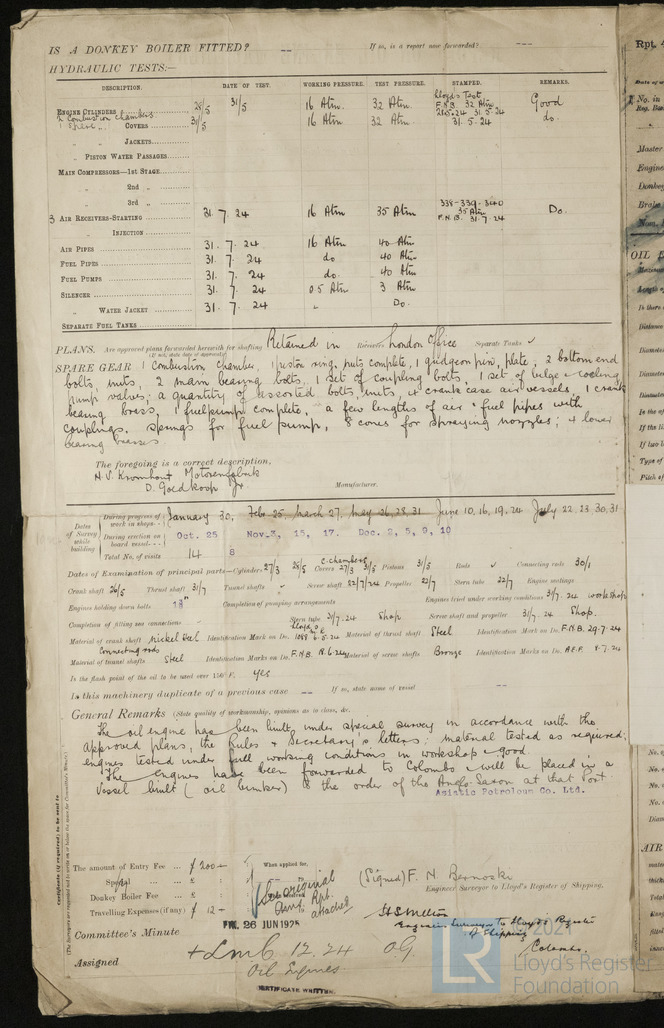 IS A DONKEY BOILER FITTED? -- If so, is a report now forwarded? ---
HYDRAULIC TESTS:—
DESCRIPTION. DATE OF TEST. WORKING PRESSURE. TEST PRESSURE. STAMPED. REMARKS.
ENGINE CYLINDERS 28/5 31/5 16 Atm. 32 Atm. Lloyd's Test F.N.B. 32 Atm. 28.5.24 31.5.24 Good
" Combustion chambers COVERS 31/5 16 Atm 32 Atm. 31.5.24 do.
" JACKETS
" PISTON WATER PASSAGES
MAIN COMPRESSORS—1st STAGE
" 2nd "
" 3rd "
3 AIR RECEIVERS-STARTING 31.7.24 16 Atm 35 Atm 338-339-340 35 Atm F.N.B. 31.7.24 Do.
" INJECTION
AIR PIPES 31.7.24 16 Atm 40 Atm
FUEL PIPES 31.7.24 do 40 Atm
FUEL PUMPS 31.7.24 do. 40 Atm
SILENCER 31.7.24 0.5 Atm 3 Atm
" WATER JACKET 31.7.24 " Do.
SEPARATE FUEL TANKS
PLANS. Are approved plans forwarded herewith for shafting Retained in Receivers London Office Separate Tanks ✓
(If not, state date of approval)
SPARE GEAR 1 Combustion chamber, 1 piston ring, nuts complete, 1 gudgeon pin, plate, 2 bottom end
bolts, nuts, 2 main bearing bolts, 1 set of coupling bolts, 1 set of bilge & cooling
pump valves, a quantity of assorted bolts & nuts, 4 crank case air vessels, 1 crank
bearing brass, 1 fuelpump complete, a few lengths of air & fuel pipes with
couplings, springs for fuel pump, 8 cones for spraying nozzles; 4 lower
bearing brasses
The foregoing is a correct description,
N.V. Kromhout Motorenfabriek
D. Goedkoop Jr. Manufacturer.
Dates of Survey while building
During progress of work in shops-- January 30, Feb 25, March 27, May 26, 28, 31 June 10, 16, 19, 24 July 22, 23, 30, 31
During erection on board vessel--- Oct. 25 Nov. 3, 15, 17. Dec. 2, 5, 9, 10
Total No. of visits 14 8
Dates of Examination of principal parts—Cylinders 27/3 28/5 Covers c.chambers 27/3 31/5 Pistons 31/5 Rods ✓ Connecting rods 30/1
Crank shaft 26/5 Thrust shaft 31/7 Tunnel shafts ✓ Screw shaft 22/7/24 Propeller 22/7 Stern tube 22/7 Engine seatings
Engines holding down bolts Completion of pumping arrangements Engines tried under working conditions 31/7.24 workshop
Completion of fitting sea connections Stern tube 31/7.24 Shop Screw shaft and propeller 31/7.24 Shop.
Material of crank shaft Nickel steel Identification Mark on Do. Lloyd's 1088 6.5.24 Material of thrust shaft Steel Identification Mark on Do. F.N.B. 29.7.24
Connecting rods
Material of tunnel shafts Steel Identification Marks on Do. F.N.B. 19.6.24 Material of screw shafts Bronze Identification Marks on Do.
Is the flash point of the oil to be used over 150° F. yes
Is this machinery duplicate of a previous case -- If so, state name of vessel --
General Remarks (State quality of workmanship, opinions as to class, &c.
The oil engine has been built under special survey in accordance with the
approved plans, the Rules & Secretary's letters; material tested as required;
engines tested under full working conditions in workshop & good.
The engines have been forwarded to Colombo & will be placed in a
vessel built (oil bunker) to the order of the Anglo Saxon at that Port.
Asiatic Petroleum Co. Ltd.
The amount of Entry Fee .. £ 200 - When applied for,
Special .. £
Donkey Boiler Fee .. £
Travelling Expenses (if any) £ 12 -
See original
Amst. Rpt.
attached
(Signed) F. N. Bernoski
Engineer Surveyor to Lloyd's Register of Shipping.
Engineer Surveyor to Lloyd's Register
of Shipping
Colombo.
Committee's Minute FRI. 26 JUN 1925
Assigned + LMC 12.24 O.G.
Oil Engines
CERTIFICATE WRITTEN.
Lloyd's Register
Foundation
Rpt. 4
No. in
Reg. Book
Master
Engine
Donkey
OIL
AIR